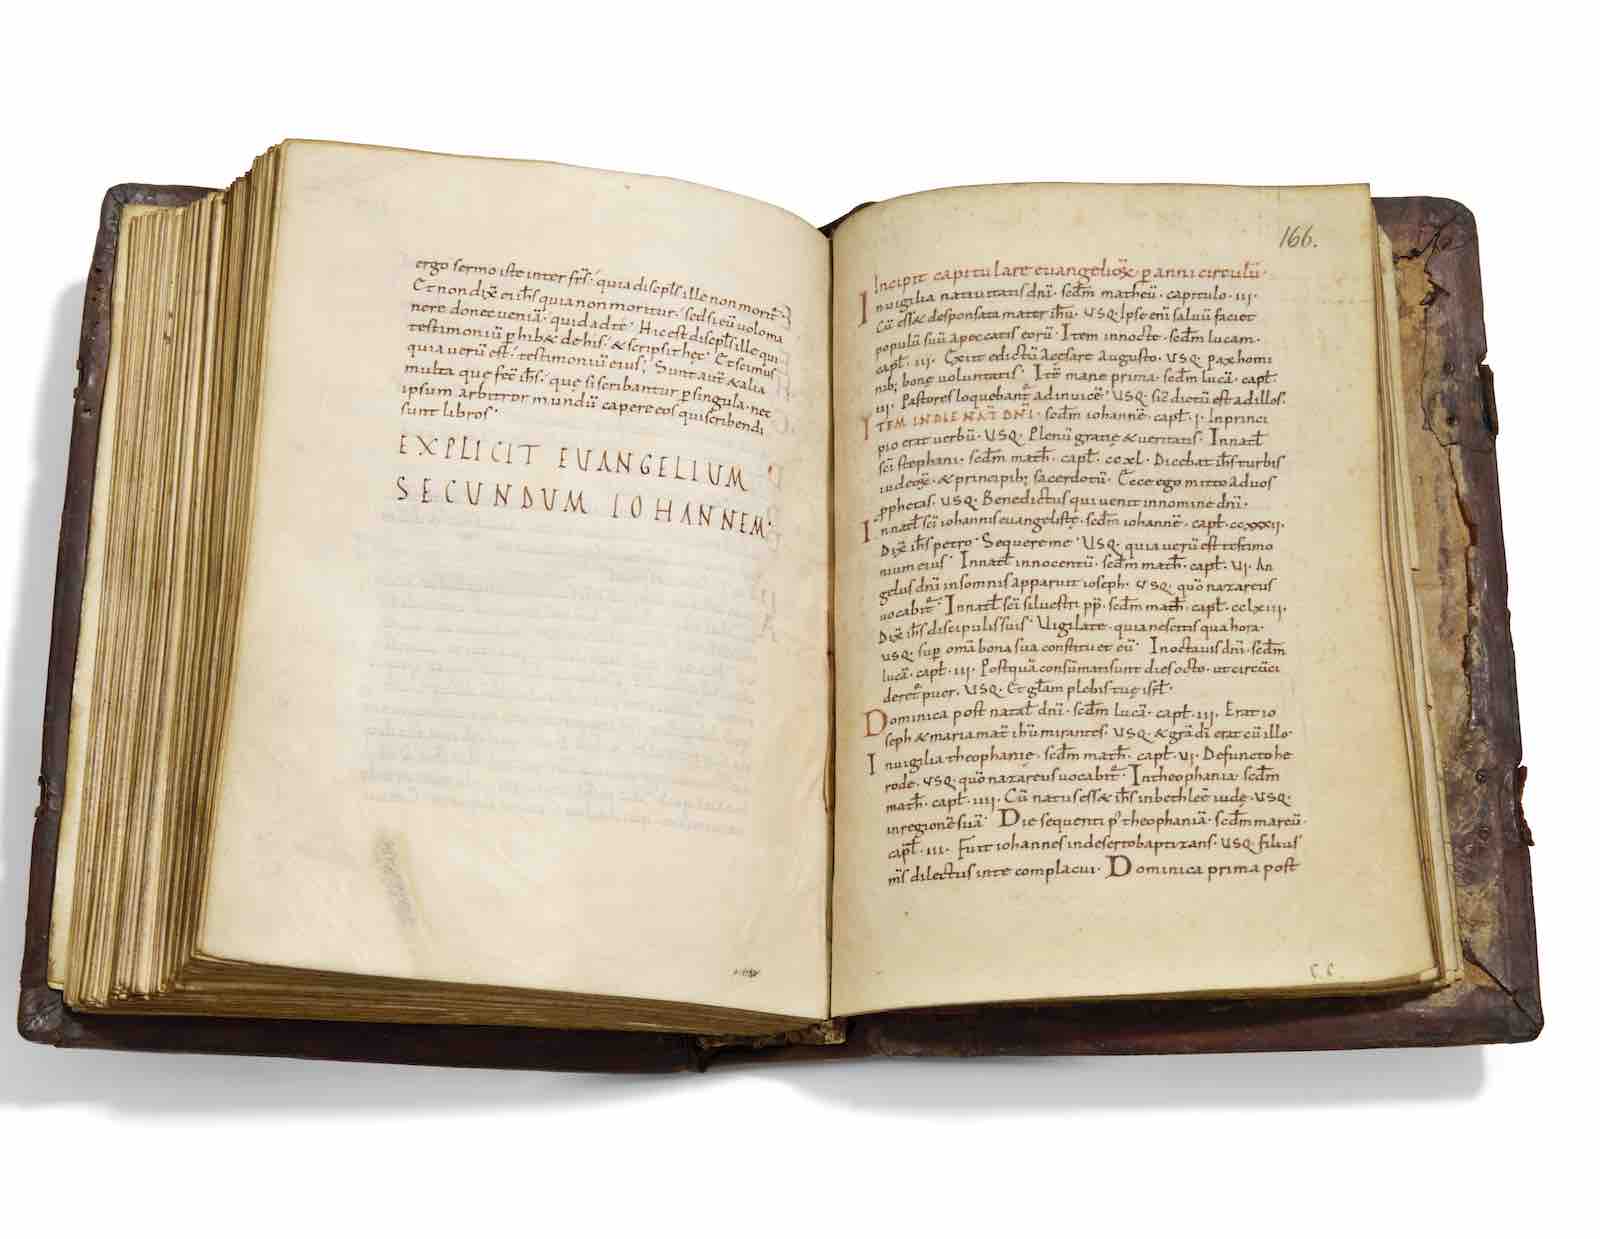 ergo sermo iste inter fr̅s · quia discipl̅s ille non morit̅
Et non dix̅ ei ih̅s quia non moritur · sed si eū uolo ma
nere donec ueniā · quid ad te · Hic est discipl̅s ille qui
testimoniū phib& de his · & scripsit hec · Et scimus
quia uerū est · testimoniū eius · Sunt aut̅ & alia
multa que fec̅ ih̅s · que si scribantur p singula · nec
ipsum arbitror mundū capere eos qui scribendi
sunt libros ·
EXPLICIT EUANGELIUM
SECUNDUM IOHANNEM ·
166.
Incipit capitulare euangelioꝝ p anni circulū ·
In uigilia natiuitatis dn̅i · scd̅m matheū · capitulo · iii ·
Cū ess& desponsata mater ih̅u · USQ · Ipse eni̅ saluū faciet
populū suū a peccatis eorū · Item in nocte · scd̅m lucam ·
capł · iii · Exiit edictū a cesare augusto · USQ · pax homi
nib; bonę uoluntatis · Itē mane prima · scd̅m lucā · capł ·
iii · Pastores loquebant̅ ad inuicē · USQ · sic̅ dictū est ad illos ·
ITEM IN DIE NAT̅ DN̅I · scd̅m iohannē · capł · i · In princi
pio erat uerbū · USQ · Plenū gratię & ueritatis · In natł
sc̅i stephani · scd̅m math̅ · capł · ccxl · Dicebat ih̅s turbis
iudeoꝝ · & principib; sacerdotū · Ecce ego mitto ad uos
pphetas · USQ · Benedictus qui uenit in nomine dn̅i ·
In natł sc̅i iohannis euangelistę · scd̅m iohannē · capł · ccxxxii ·
Dix̅ ih̅s petro · Sequere me · USQ · quia uerū est testimo
nium eius · In natł innocentū · scd̅m math̅ · capł · ui · An
gelus dn̅i in somnis apparuit ioseph · USQ · quō nazareus
uocabit̅ · In natł sc̅i siluestri pp̅ · scd̅m math̅ · capł · cclxiii ·
Dix̅ ih̅s discipulis suis · Uigilate · quia nescitis qua hora ·
USQ · sup om̅a bona sua constituet eū · In octauis dn̅i · scd̅m
lucā · capł · iii · Postquā consūmati sunt dies octo · ut circūci
deret̅ puer · USQ · Et gl̅am plebis tuę isrł ·
Dominica post natal̅ dn̅i · scd̅m lucā · capł · iii · Erat io
seph & maria mat̅ ih̅u mirantes · USQ · & gr̅a di̅ erat cū illo ·
In uigilia theophanię · scd̅m math̅ · capł · ui · Defuncto he
rode · USQ · quō nazareus uocabit̅ · In theophania · scd̅m
math̅ · capł · iiii · Cū natus ess& ih̅s in bethleē iudę · USQ ·
in regionē suā · Die sequenti p̅ theophaniā · scd̅m marcū ·
capł · iii · Fuit iohannes in deserto baptizans · USQ · filius
m̅s dilectus in te complacui · Dominica prima post
C. C.